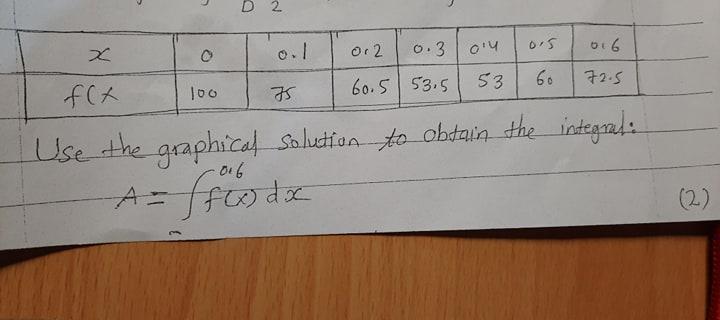 D 2
x 0 0.1 0.2 0.3 0.4 0.5 0.6
f(x 100 75 60.5 53.5 53 60 72.5
Use the graphical solution to obtain the integral:
0.6
A = ∫ f(x) dx
(2)